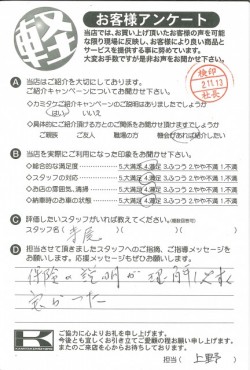 軽
お客様アンケート
当店では、お買い上げ頂いたお客様の声を可能
な限り現場に反映し、お客様により良い商品と
サービスを提供する事に努めています。
大変お手数ですが是非お声をお聞かせ下さい。
検印
2.11.13
社長
A 当店はご紹介を大切にしております。
ご紹介キャンペーンについてお聞かせ下さい。
◇カミタウンご紹介キャンペーンのご説明はありましたでしょうか
はい いいえ
◇具体的にご紹介頂ける方とのご関係をお聞かせ頂けますでしょうか
ご親族 ご友人 職場の方 機会があれば紹介したい
B 当店を実際にご利用になった印象をお聞かせ下さい。
◇総合的な満足度 5.大満足 4.満足 3.ふつう 2.やや不満 1.不満
◇スタッフの対応 5.大満足 4.満足 3.ふつう 2.やや不満 1.不満
◇お店の雰囲気、清掃 5.大満足 4.満足 3.ふつう 2.やや不満 1.不満
◇納車時のお車の状態 5.大満足 4.満足 3.ふつう 2.やや不満 1.不満
C 評価したいスタッフがいれば教えてください。(複数回答可)
スタッフ名
D 担当させて頂きましたスタッフへのご指摘、ご指導メッセージをお
願いします。応援メッセージもぜひお願いします。
保険の説明が理解しやす
かった
K
ご協力に心よりお礼を申し上げます。
今後とも宜しくお引き立てご愛顧の程お願い申し上げます。
またのご来店を心からお待ちしております。
担当( 上野 )